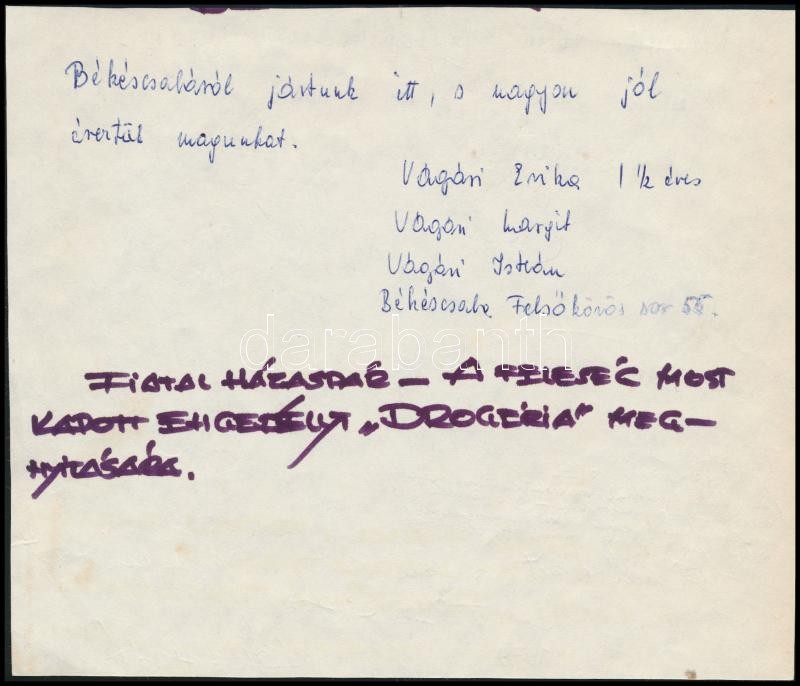 Békéscsabáról jártunk itt, s nagyon jól
éreztük magunkat.
Vágási Erika 1 ½ éves
Vágási Margit
Vágási István
Békéscsaba Felsőkörös sor 55.
darabanth
FIATAL HÁZASPÁR – A FELESÉG MOST
KAPOTT ENGEDÉLYT „DROGÉRIA" MEG–
NYITÁSÁRA.